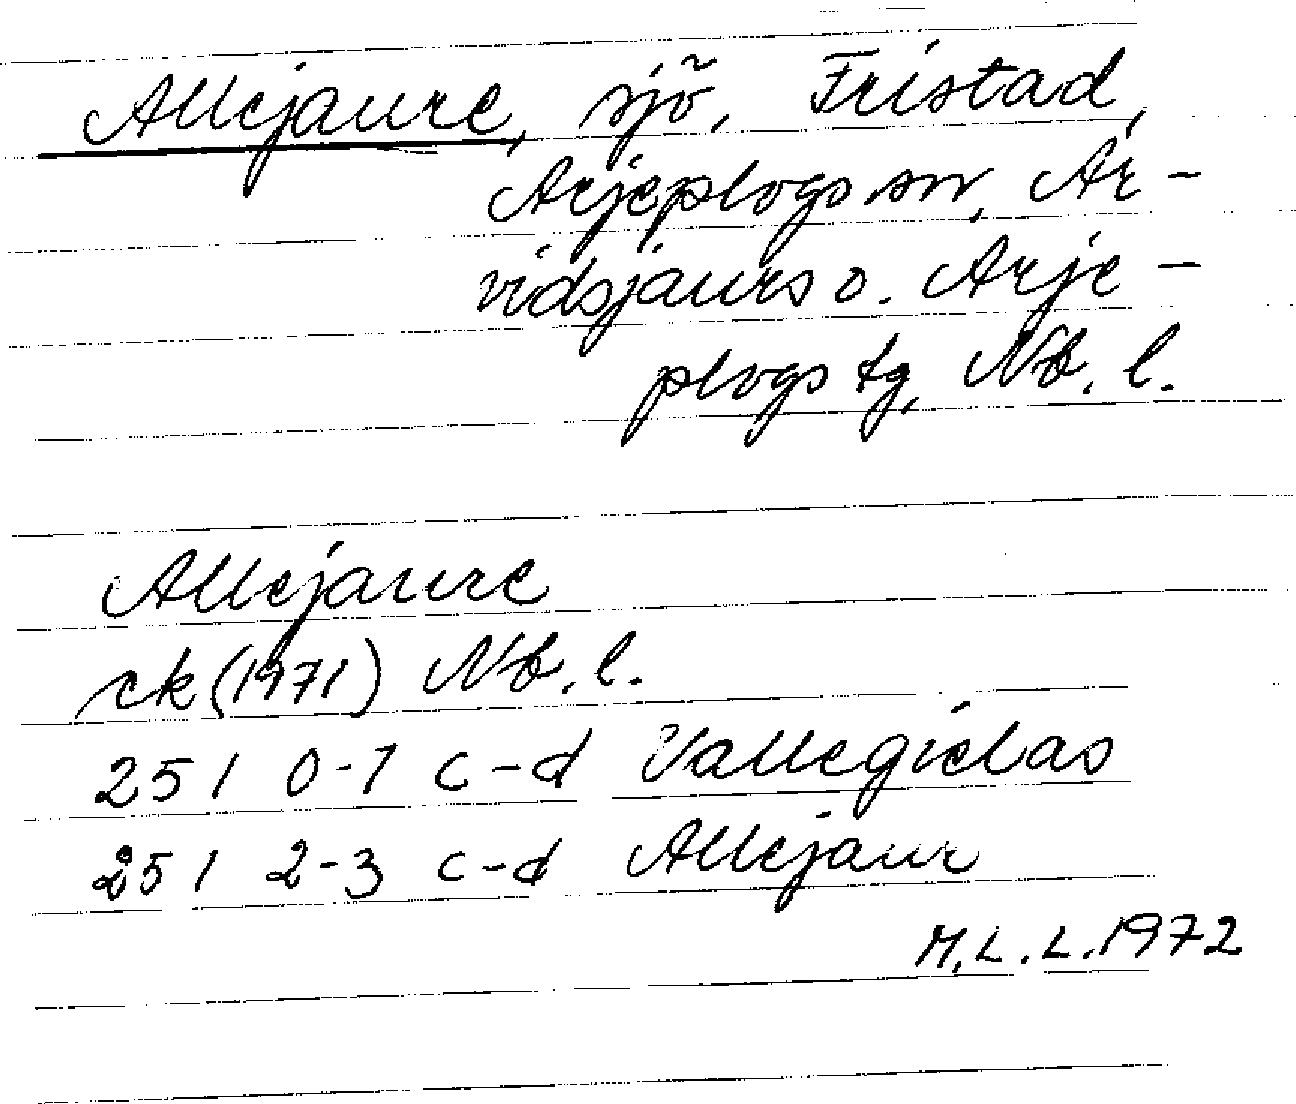 Allejaure, sjö, Fristad,
Arjeplogs sn, Ar-
vidsjaurs o. Arje-
plogs tg, Nb. l.
Allejaure
ek (1971) Nb. l.
251 0-1 c-d Vallegielas
251 2-3 c-d Allejaur
M.L.L. 1972